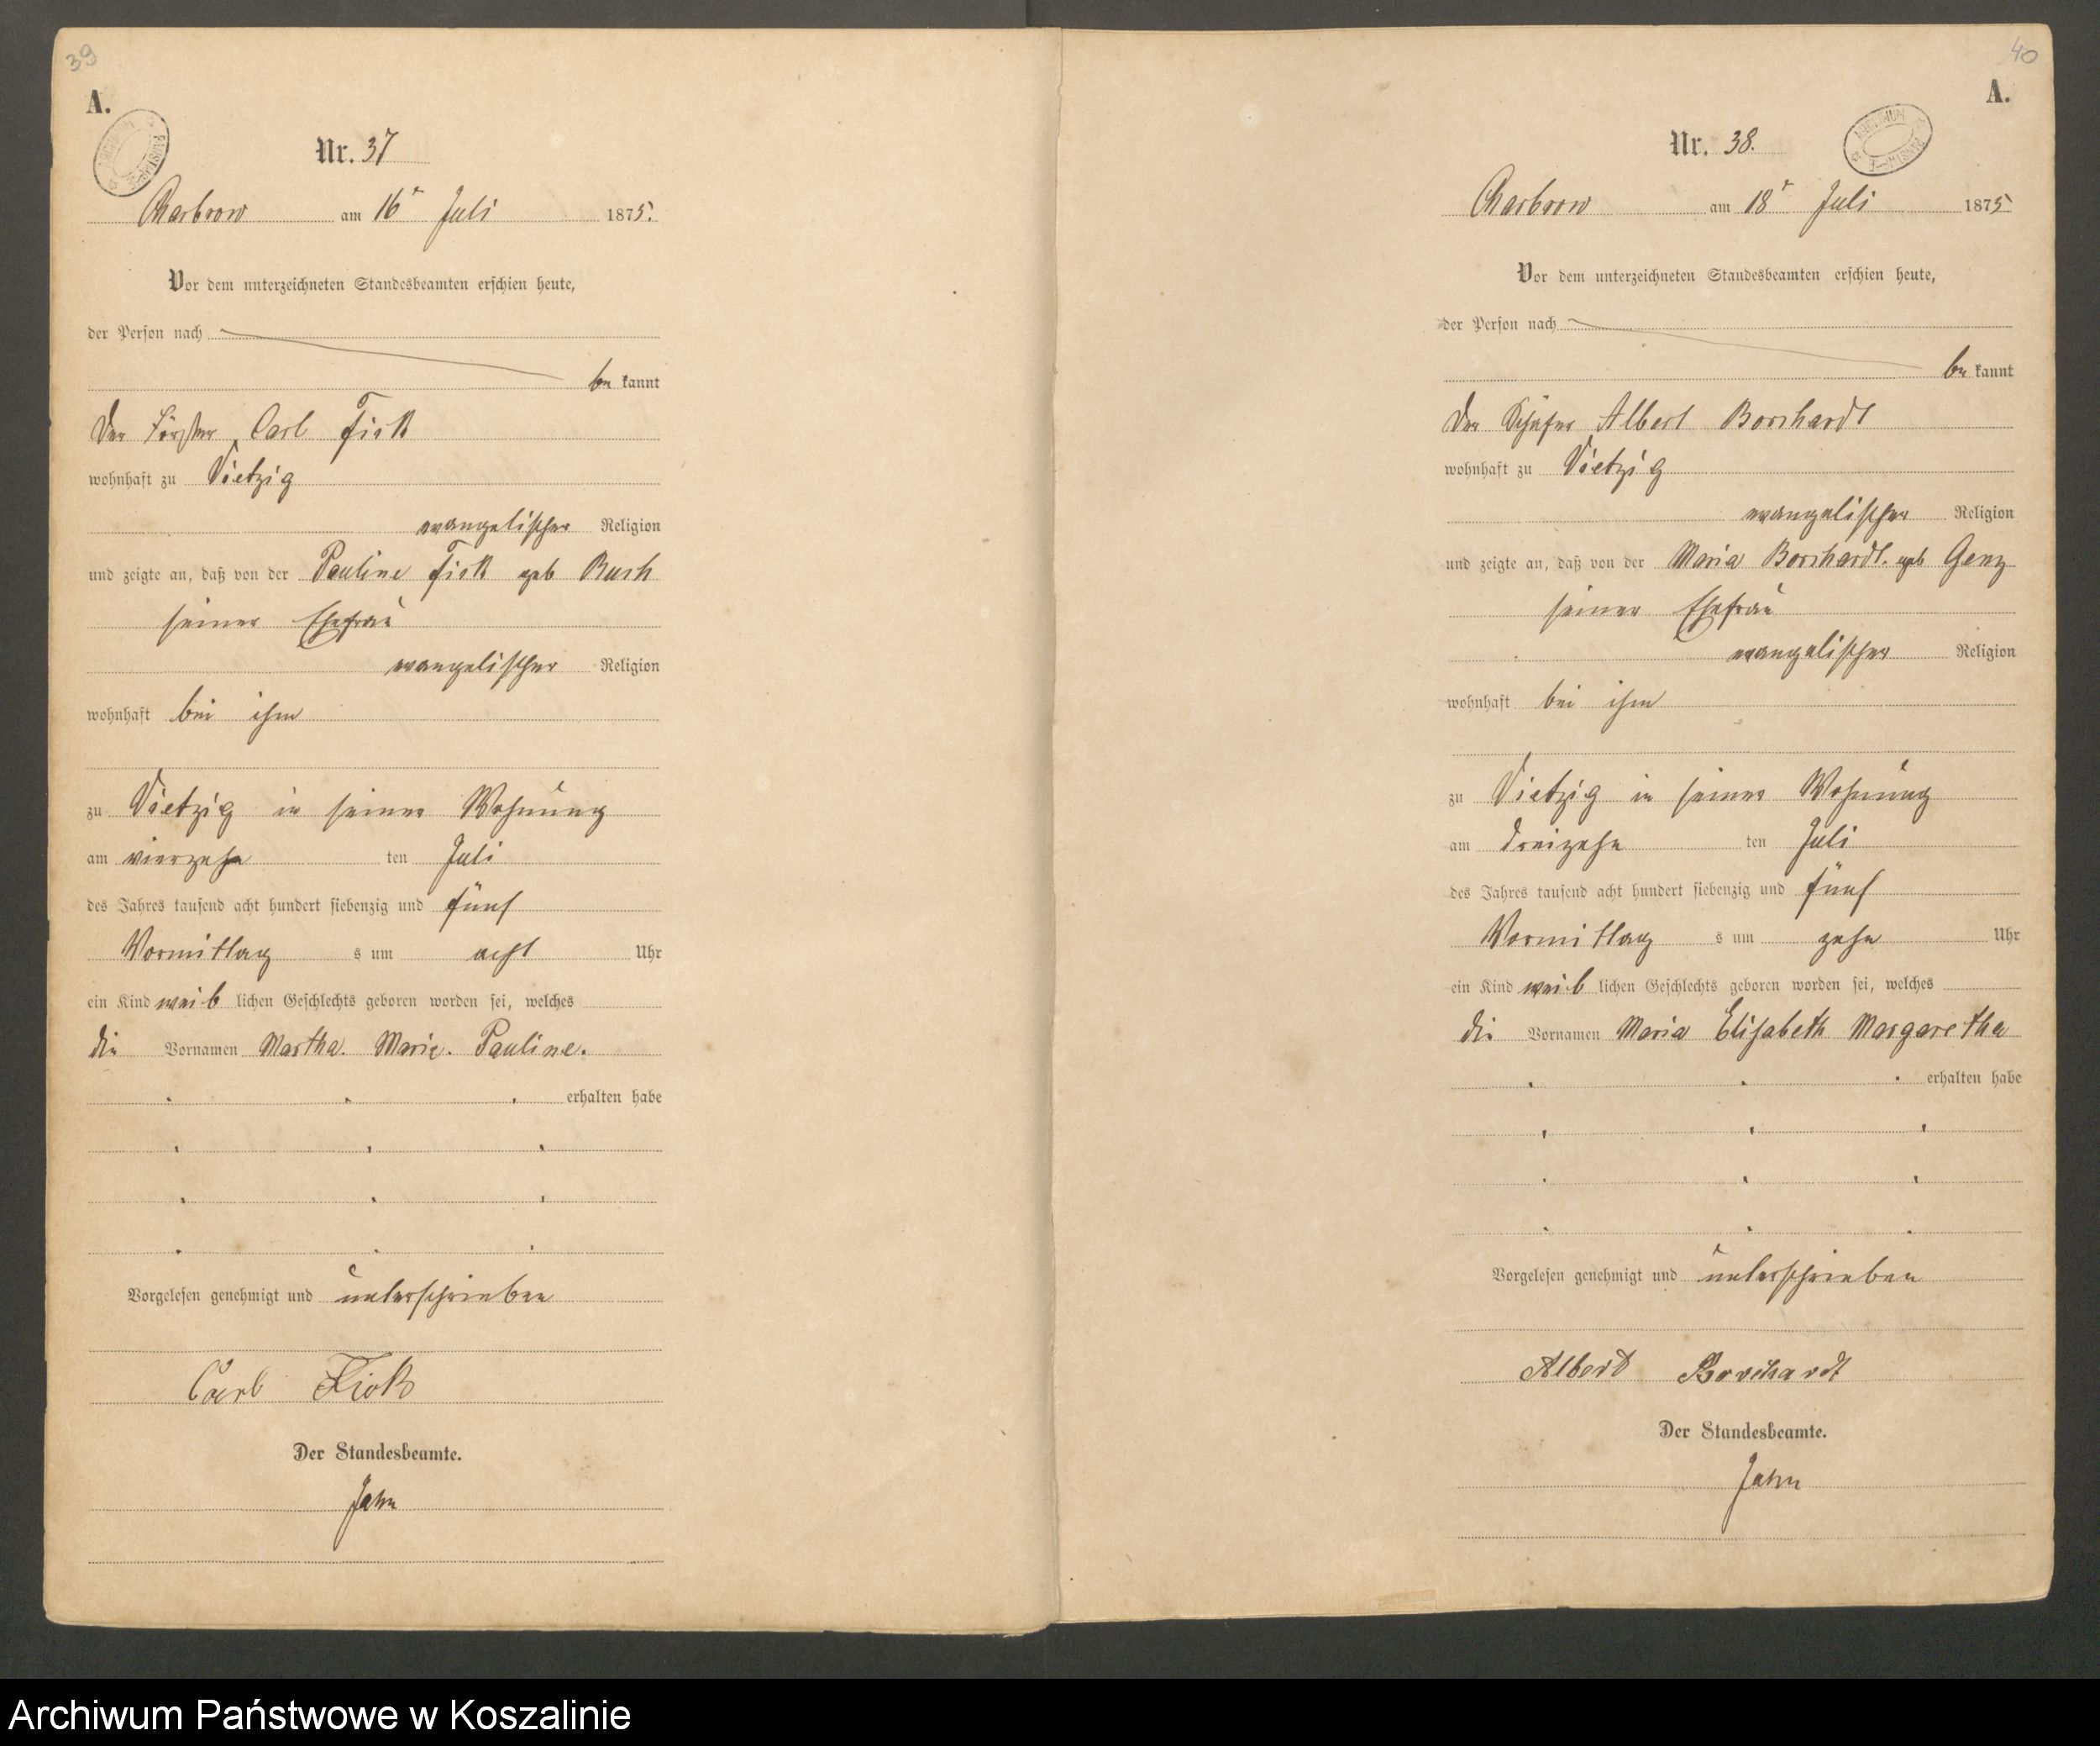 39
A.
Nr. 37
Charbrow am 16t Juli 1875.
Vor dem unterzeichneten Standesbeamten erschien heute,
der Person nach
be kannt
Der Förster Carl Fick
wohnhaft zu Vietzig
evangelischer Religion
und zeigte an, daß von der Pauline Fick geb
seiner Ehefrau
evangelischer Religion
wohnhaft bei ihm
zu Vietzig in seiner Wohnung
am vierzehn ten Juli
des Jahres tausend acht hundert siebenzig und fünf
Vormittag s um acht Uhr
ein Kind weib lichen Geschlechts geboren worden sei, welches
die Vornamen Martha. Marie. Pauline.
erhalten habe
Vorgelesen genehmigt und unterschrieben
Carl Fick
Der Standesbeamte.
Jahn
40
A.
Nr. 38.
Charbrow am 18t Juli 1875
Vor dem unterzeichneten Standesbeamten erschien heute,
der Person nach
be kannt
Der Schäfer Albert Borchardt
wohnhaft zu Vietzig
evangelischer Religion
und zeigte an, daß von der Maria Borchardt. geb Genz
seiner Ehefrau
evangelischer Religion
wohnhaft bei ihm
zu Vietzig in seiner Wohnung
am dreizehn ten Juli
des Jahres tausend acht hundert siebenzig und fünf
Vormittag s um zehn Uhr
ein Kind weib lichen Geschlechts geboren worden sei, welches
die Vornamen Maria Elisabeth Margaretha
erhalten habe
Vorgelesen genehmigt und unterschrieben
Albert Borchardt
Der Standesbeamte.
Jahn
Archiwum Państwowe w Koszalinie